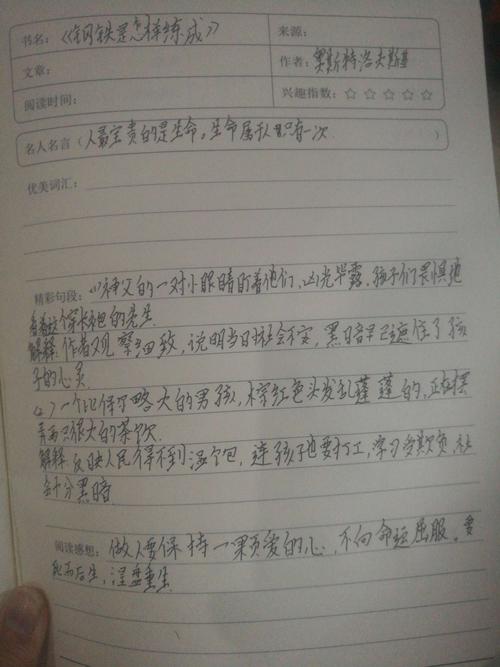 书名：《钢铁是怎样练成》
来源：
文章：
作者：奥斯特洛夫斯基
阅读时间：
兴趣指数：☆☆☆☆☆
名人名言（人最宝贵的是生命。生命属于人只有一次）
优美词汇：
精彩句段：(1)神父的一对小眼睛盯着他们，凶光毕露。孩子们畏惧地
看着这个穿长袍的先生
解释：作者观察细致，说明当日社会不安，黑暗早已遮住了孩
子的心灵
(2)一个比保尔略大的男孩，棕红色头发乱蓬蓬的，正在摆
弄两只很大的茶炊
解释 反映人民得不到温饱，连孩子也要打工，
会十分黑暗
阅读感想：做人要保持一颗爱的心，不向命运屈服。要
死而后生，涅盘重生